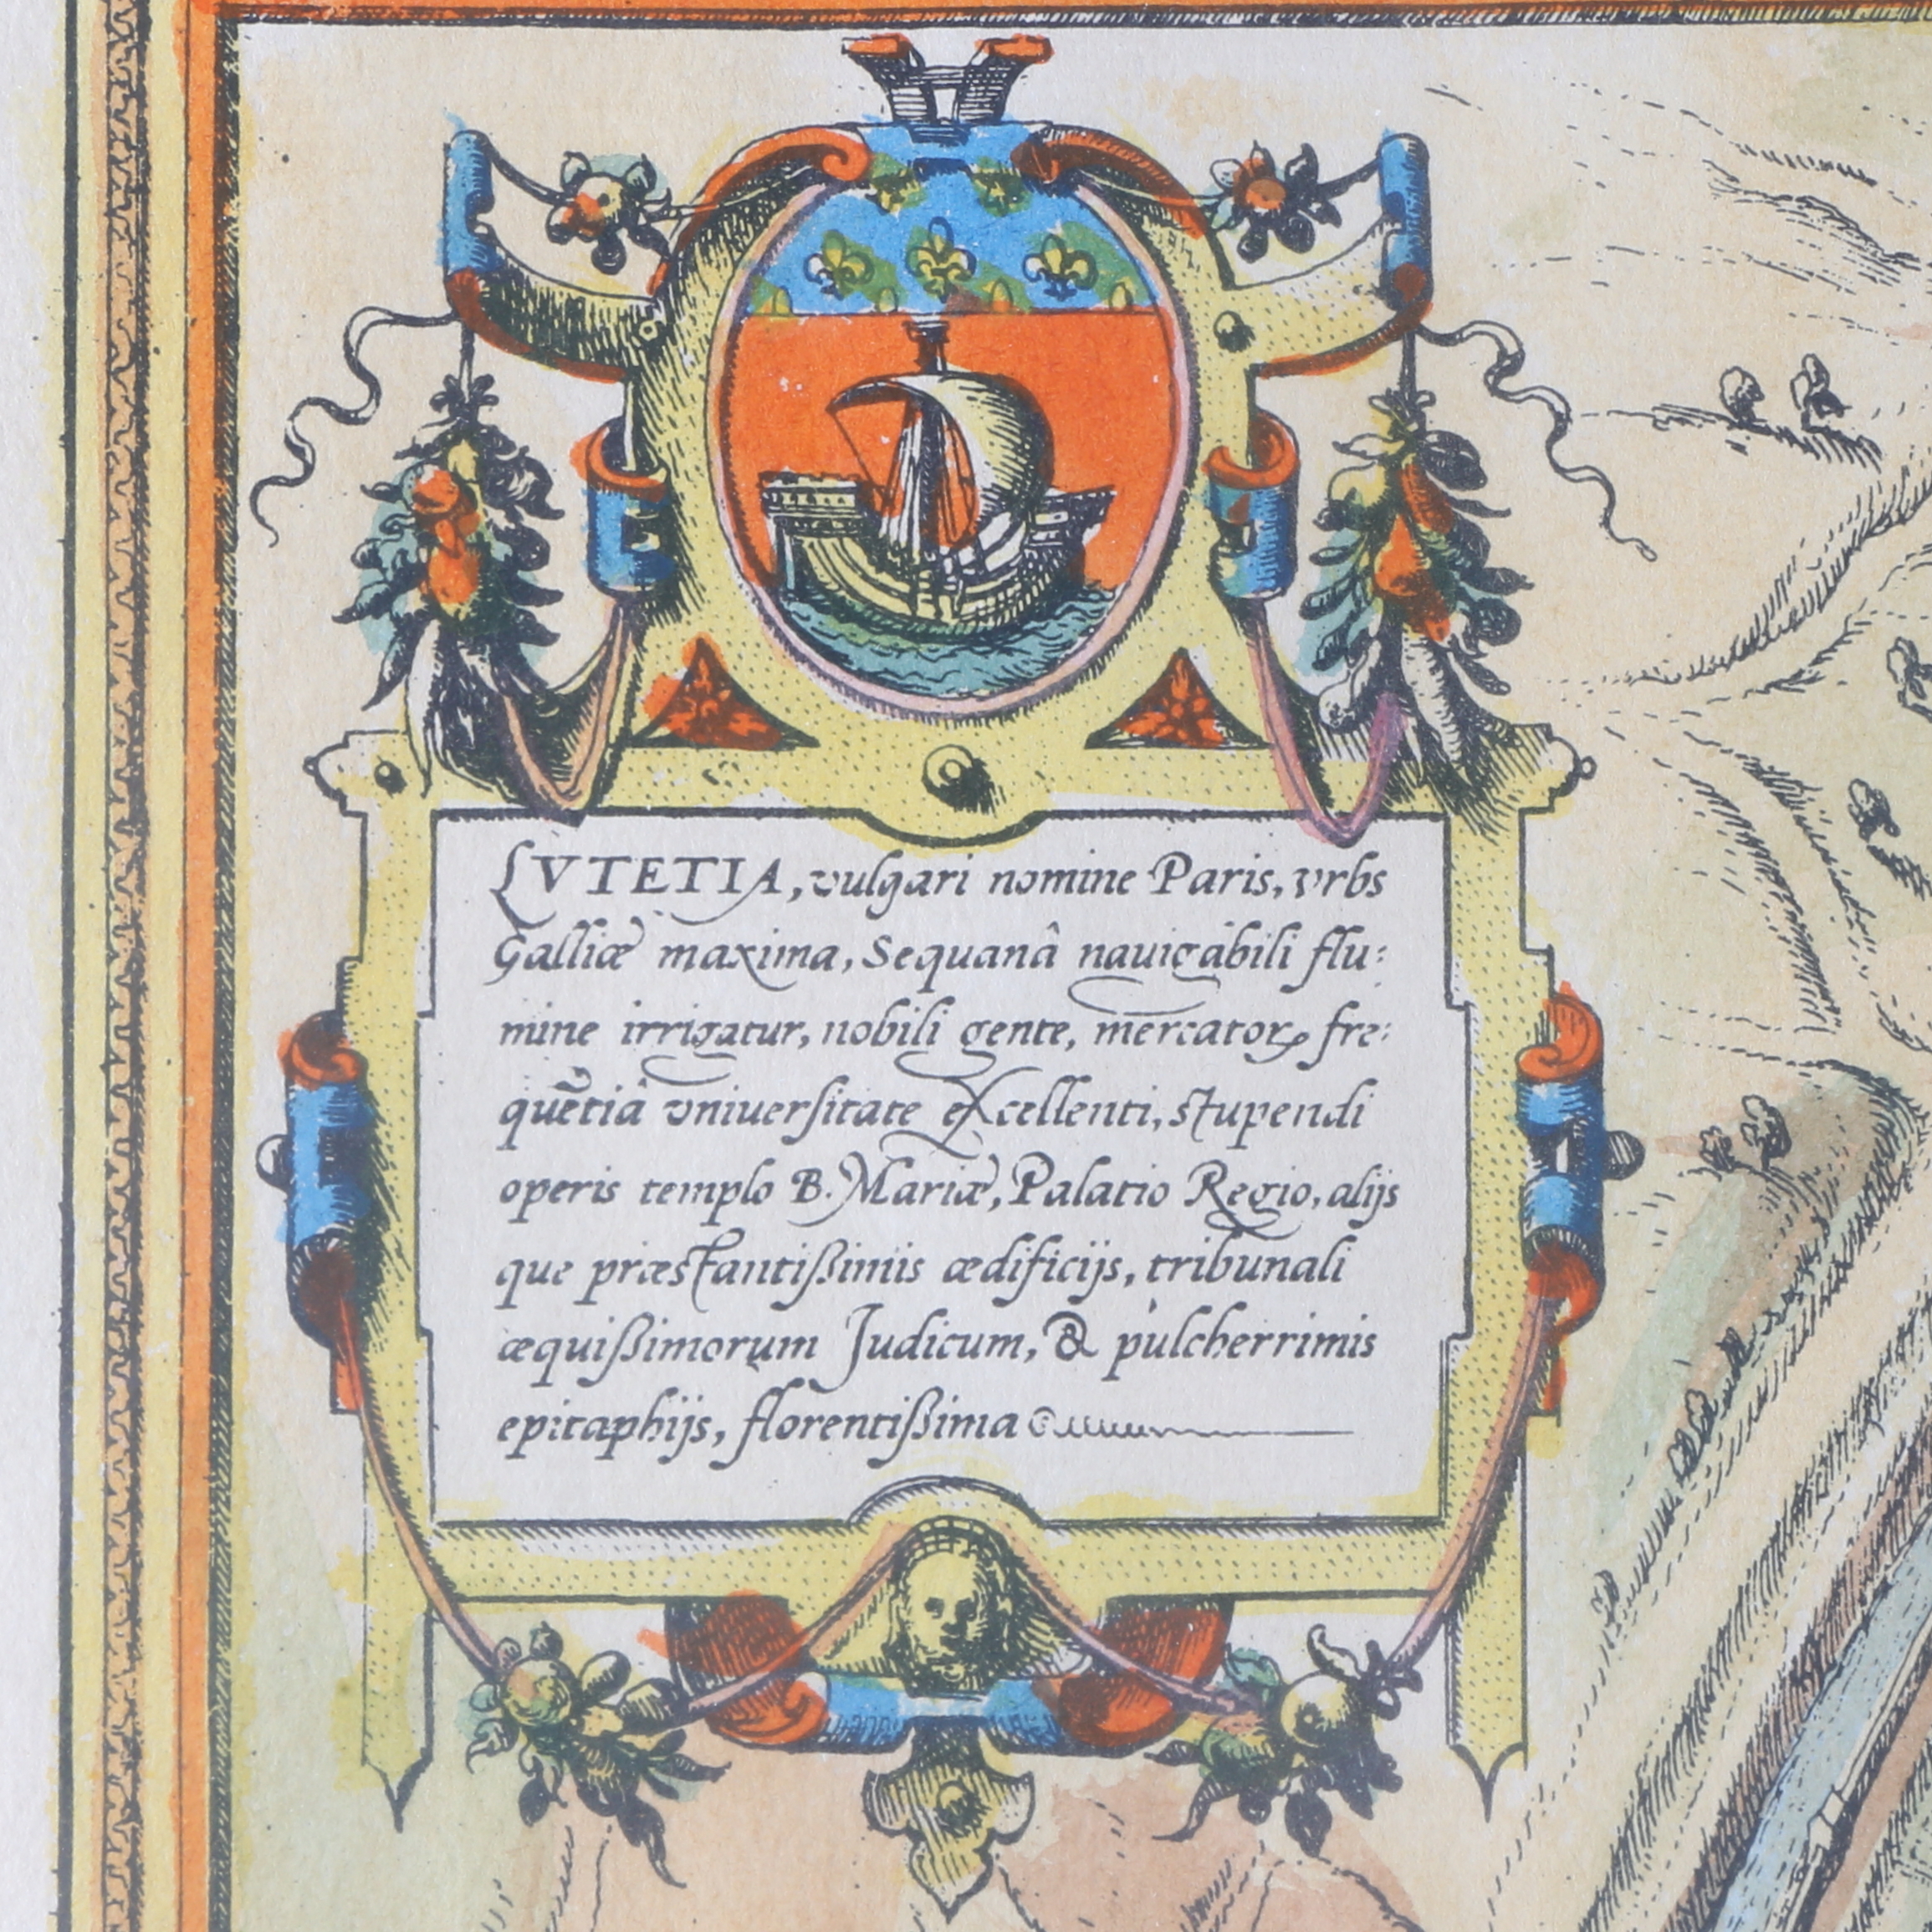 LVTETIA, vulgari nomine Paris, vrbs
Galliæ maxima, Sequanâ nauigabili flu:
mine irrigatur, nobili gente, mercatorꝝ fre:
quētiâ vniuerſitate eXcellenti, stupendi
operis templo B. Mariæ, Palatio Regio, alijs
que præstantißimis ædificijs, tribunali
æquißimorum Judicum, & pulcherrimis
epitaphijs, florentißima